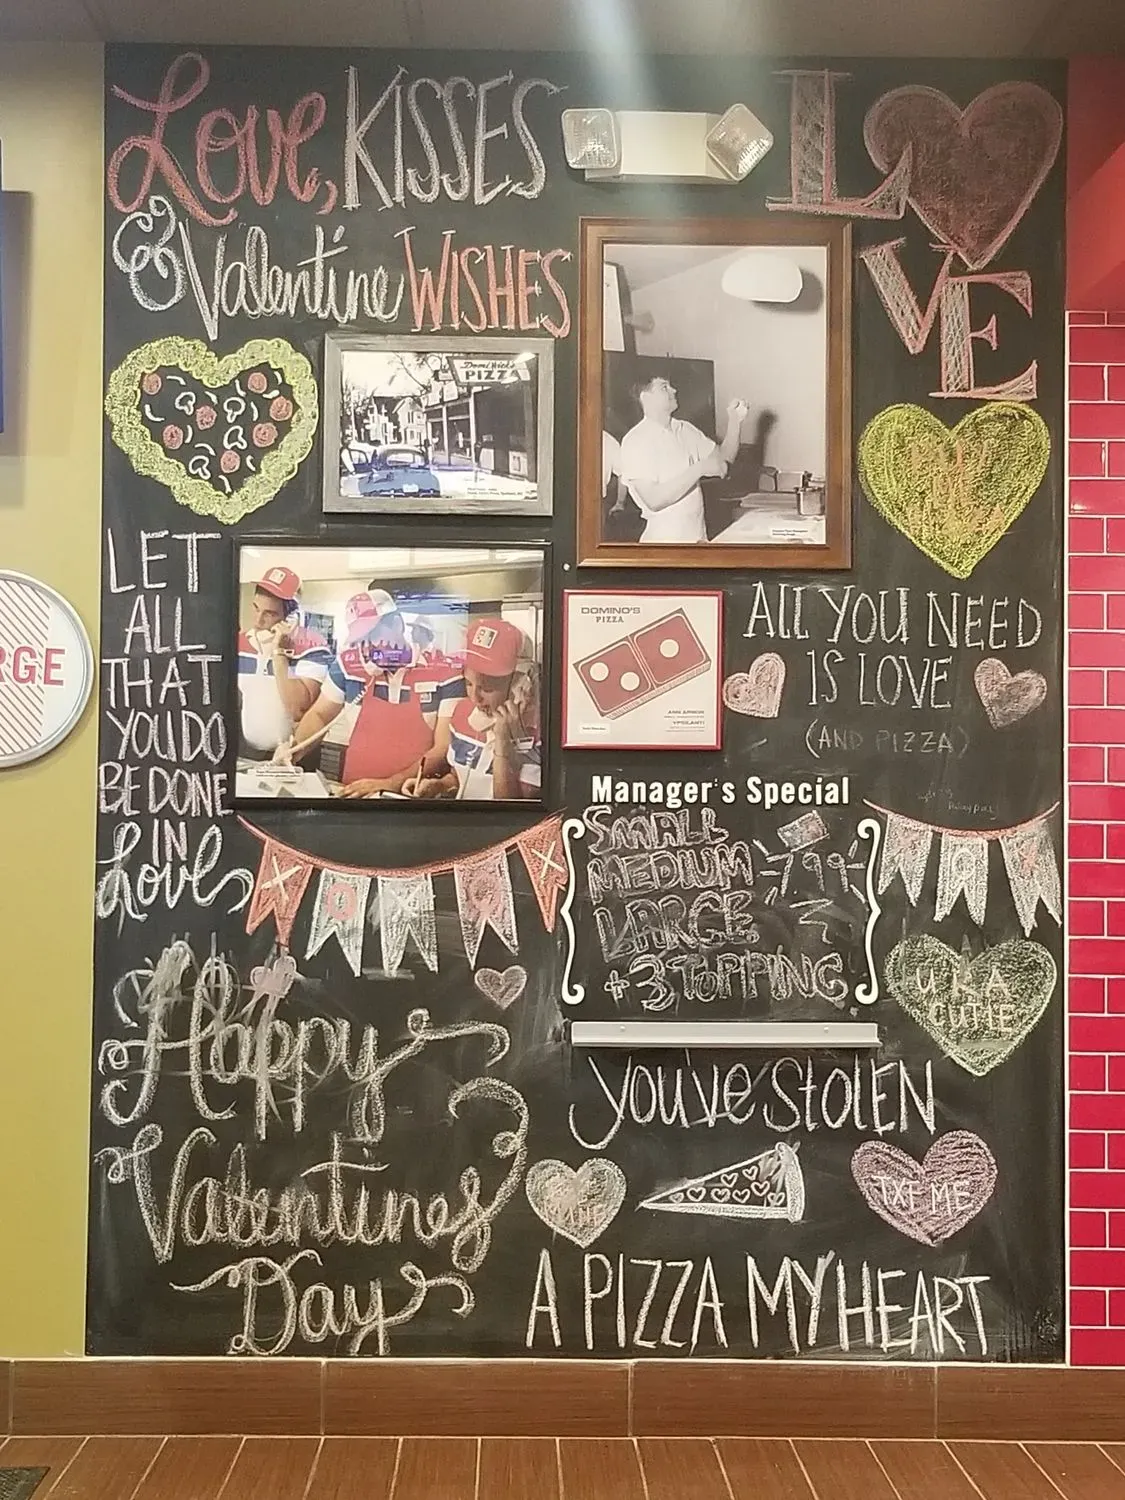 Love, KISSES
& Valentine WISHES
LOVE
DomiNick's
PIZZA
LET
ALL
THAT
YOU DO
BE DONE
IN
Love
RGE
DOMINO'S
PIZZA
ANN ARBOR
YPSILANTI
ALL YOU NEED
IS LOVE
(AND PIZZA)
Manager's Special
SMALL
MEDIUM
LARGE
+ 3 TOPPING
7.99
X O X O X
X O X
U R A
CUTIE
Happy
Valentines
Day
you've STOLEN
TXT ME
A PIZZA MY HEART